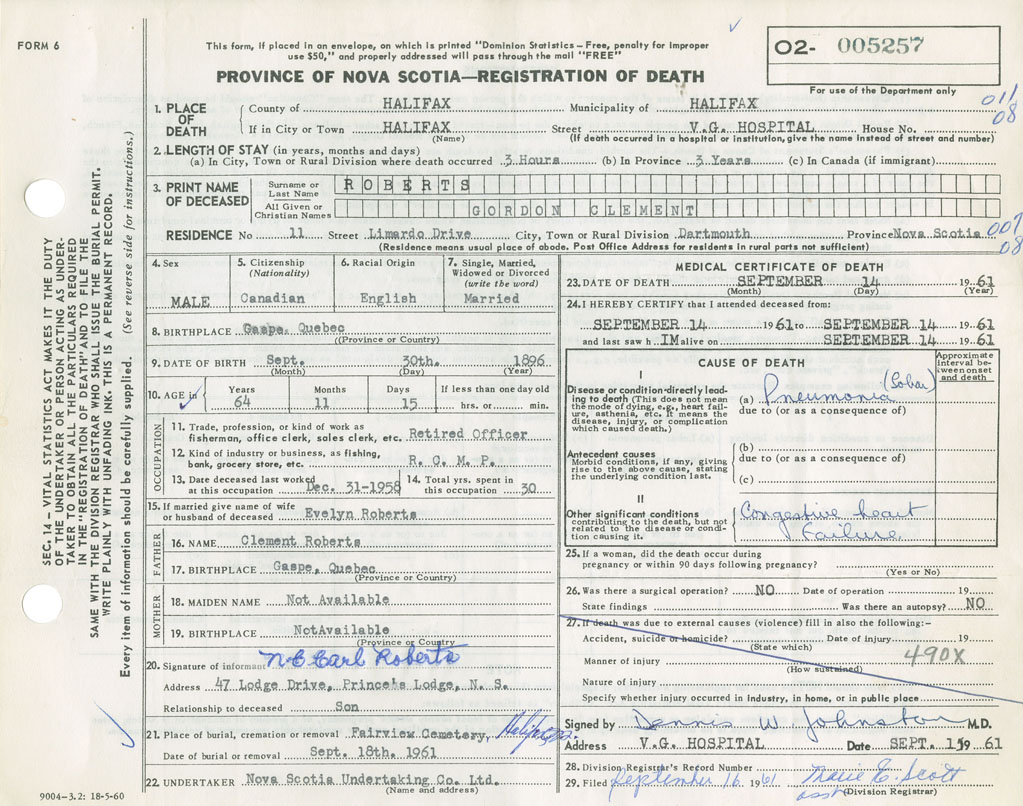 FORM 6
This form, if placed in an envelope, on which is printed "Dominion Statistics – Free, penalty for improper
use $50," and properly addressed will pass through the mail "FREE"
PROVINCE OF NOVA SCOTIA—REGISTRATION OF DEATH
O2- 005257
For use of the Department only
011
08
SEC. 14 – VITAL STATISTICS ACT MAKES IT THE DUTY
OF THE UNDERTAKER OR PERSON ACTING AS UNDER-
TAKER TO OBTAIN ALL THE PARTICULARS REQUIRED
IN THE "REGISTRATION OF DEATH" AND TO FILE THE
SAME WITH THE DIVISION REGISTRAR WHO SHALL ISSUE THE BURIAL PERMIT.
WRITE PLAINLY WITH UNFADING INK. THIS IS A PERMANENT RECORD.
Every item of information should be carefully supplied. (See reverse side for instructions.)
1. PLACE OF DEATH
County of HALIFAX Municipality of HALIFAX
If in City or Town HALIFAX Street V.G. HOSPITAL House No.
(Name) (If death occurred in a hospital or institution, give the name instead of street and number)
2. LENGTH OF STAY (in years, months and days)
(a) In City, Town or Rural Division where death occurred 3 Hours (b) In Province 3 Years (c) In Canada (if immigrant)
3. PRINT NAME OF DECEASED
Surname or Last Name ROBERTS
All Given or Christian Names GORDON CLEMENT
RESIDENCE No 11 Street Limardo Drive City, Town or Rural Division Dartmouth Province Nova Scotia
(Residence means usual place of abode. Post Office Address for residents in rural parts not sufficient)
007
08
4. Sex
MALE
5. Citizenship (Nationality)
Canadian
6. Racial Origin
English
7. Single, Married, Widowed or Divorced (write the word)
Married
8. BIRTHPLACE Gaspe, Quebec
(Province or Country)
9. DATE OF BIRTH Sept. 30th. 1896
(Month) (Day) (Year)
10. AGE in Years Months Days If less than one day old
64 11 15 hrs. or min.
OCCUPATION
11. Trade, profession, or kind of work as
fisherman, office clerk, sales clerk, etc. Retired Officer
12. Kind of industry or business, as fishing,
bank, grocery store, etc. R. C. M. P.
13. Date deceased last worked at this occupation Dec. 31-1958
14. Total yrs. spent in this occupation 30
15. If married give name of wife
or husband of deceased Evelyn Roberts
FATHER
16. NAME Clement Roberts
17. BIRTHPLACE Gaspe, Quebec
(Province or Country)
MOTHER
18. MAIDEN NAME Not Available
19. BIRTHPLACE NotAvailable
(Province or Country
20. Signature of informant N E Carl Roberts
Address 47 Lodge Drive, Prince's Lodge, N. S.
Relationship to deceased Son
21. Place of burial, cremation or removal Fairview Cemetery, Halifax
Date of burial or removal Sept. 18th. 1961
22. UNDERTAKER Nova Scotia Undertaking Co. Ltd.
(Name and address)
9004-3.2: 18-5-60
MEDICAL CERTIFICATE OF DEATH
23. DATE OF DEATH SEPTEMBER 14 19 61
(Month) (Day) (Year)
24. I HEREBY CERTIFY that I attended deceased from:
SEPTEMBER 14 1961 to SEPTEMBER 14 19 61
and last saw h IM alive on SEPTEMBER 14 19 61
CAUSE OF DEATH
Approximate interval between onset and death
I
Disease or condition directly lead-
ing to death (This does not mean
the mode of dying, e.g., heart fail-
ure, asthenia, etc. It means the
disease, injury, or complication
which caused death.)
(a) Pneumonia (Lobar)
due to (or as a consequence of)
Antecedent causes
Morbid conditions, if any, giving
rise to the above cause, stating
the underlying condition last.
(b)
due to (or as a consequence of)
(c)
II
Other significant conditions
contributing to the death, but not
related to the disease or condi-
tion causing it.
Congestive heart
Failure
25. If a woman, did the death occur during
pregnancy or within 90 days following pregnancy?
(Yes or No)
26. Was there a surgical operation? NO Date of operation 19
State findings Was there an autopsy? NO
27. If death was due to external causes (violence) fill in also the following:-
Accident, suicide or homicide? Date of injury 19
(State which)
Manner of injury 490X
(How sustained)
Nature of injury
Specify whether injury occurred in Industry, in home, or in public place
Signed by Dennis W Johnston M.D.
Address V.G. HOSPITAL Date SEPT. 15 19 61
28. Division Registrar's Record Number
29. Filed September 16 1961 Travie E. Scott
asst (Division Registrar)